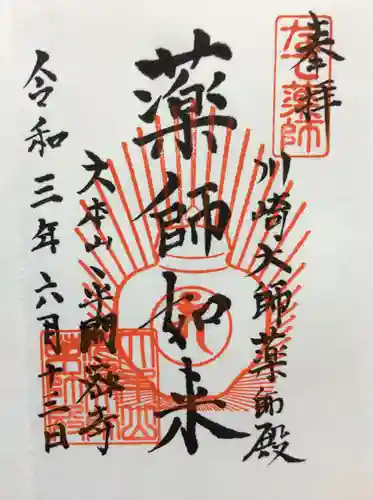 奉拝
川崎大師薬師殿
薬師如来
大本山平間寺
令和三年六月十三日